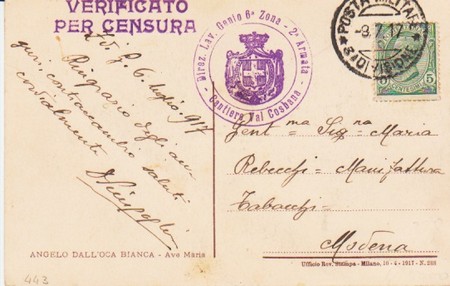 VERIFICATO
PER CENSURA
Diraz. Lav. Genio 6ª Zona - 2ª Armata
Cantiere Val Cosbana
POSTA MILITARE
-8.7.17
3ª DIVISIONE
5
Z. di G. 6 luglio 917
Ringrazio degli au
guri, contraccambio saluti
cordialmente
Gent ma Sig na Maria
Rebecchi - Manifattura
Tabacchi -
Modena
ANGELO DALL'OCA BIANCA - Ave Maria
Ufficio Rev. Stampa - Milano, 16 - 4 - 1917 - N. 268
443